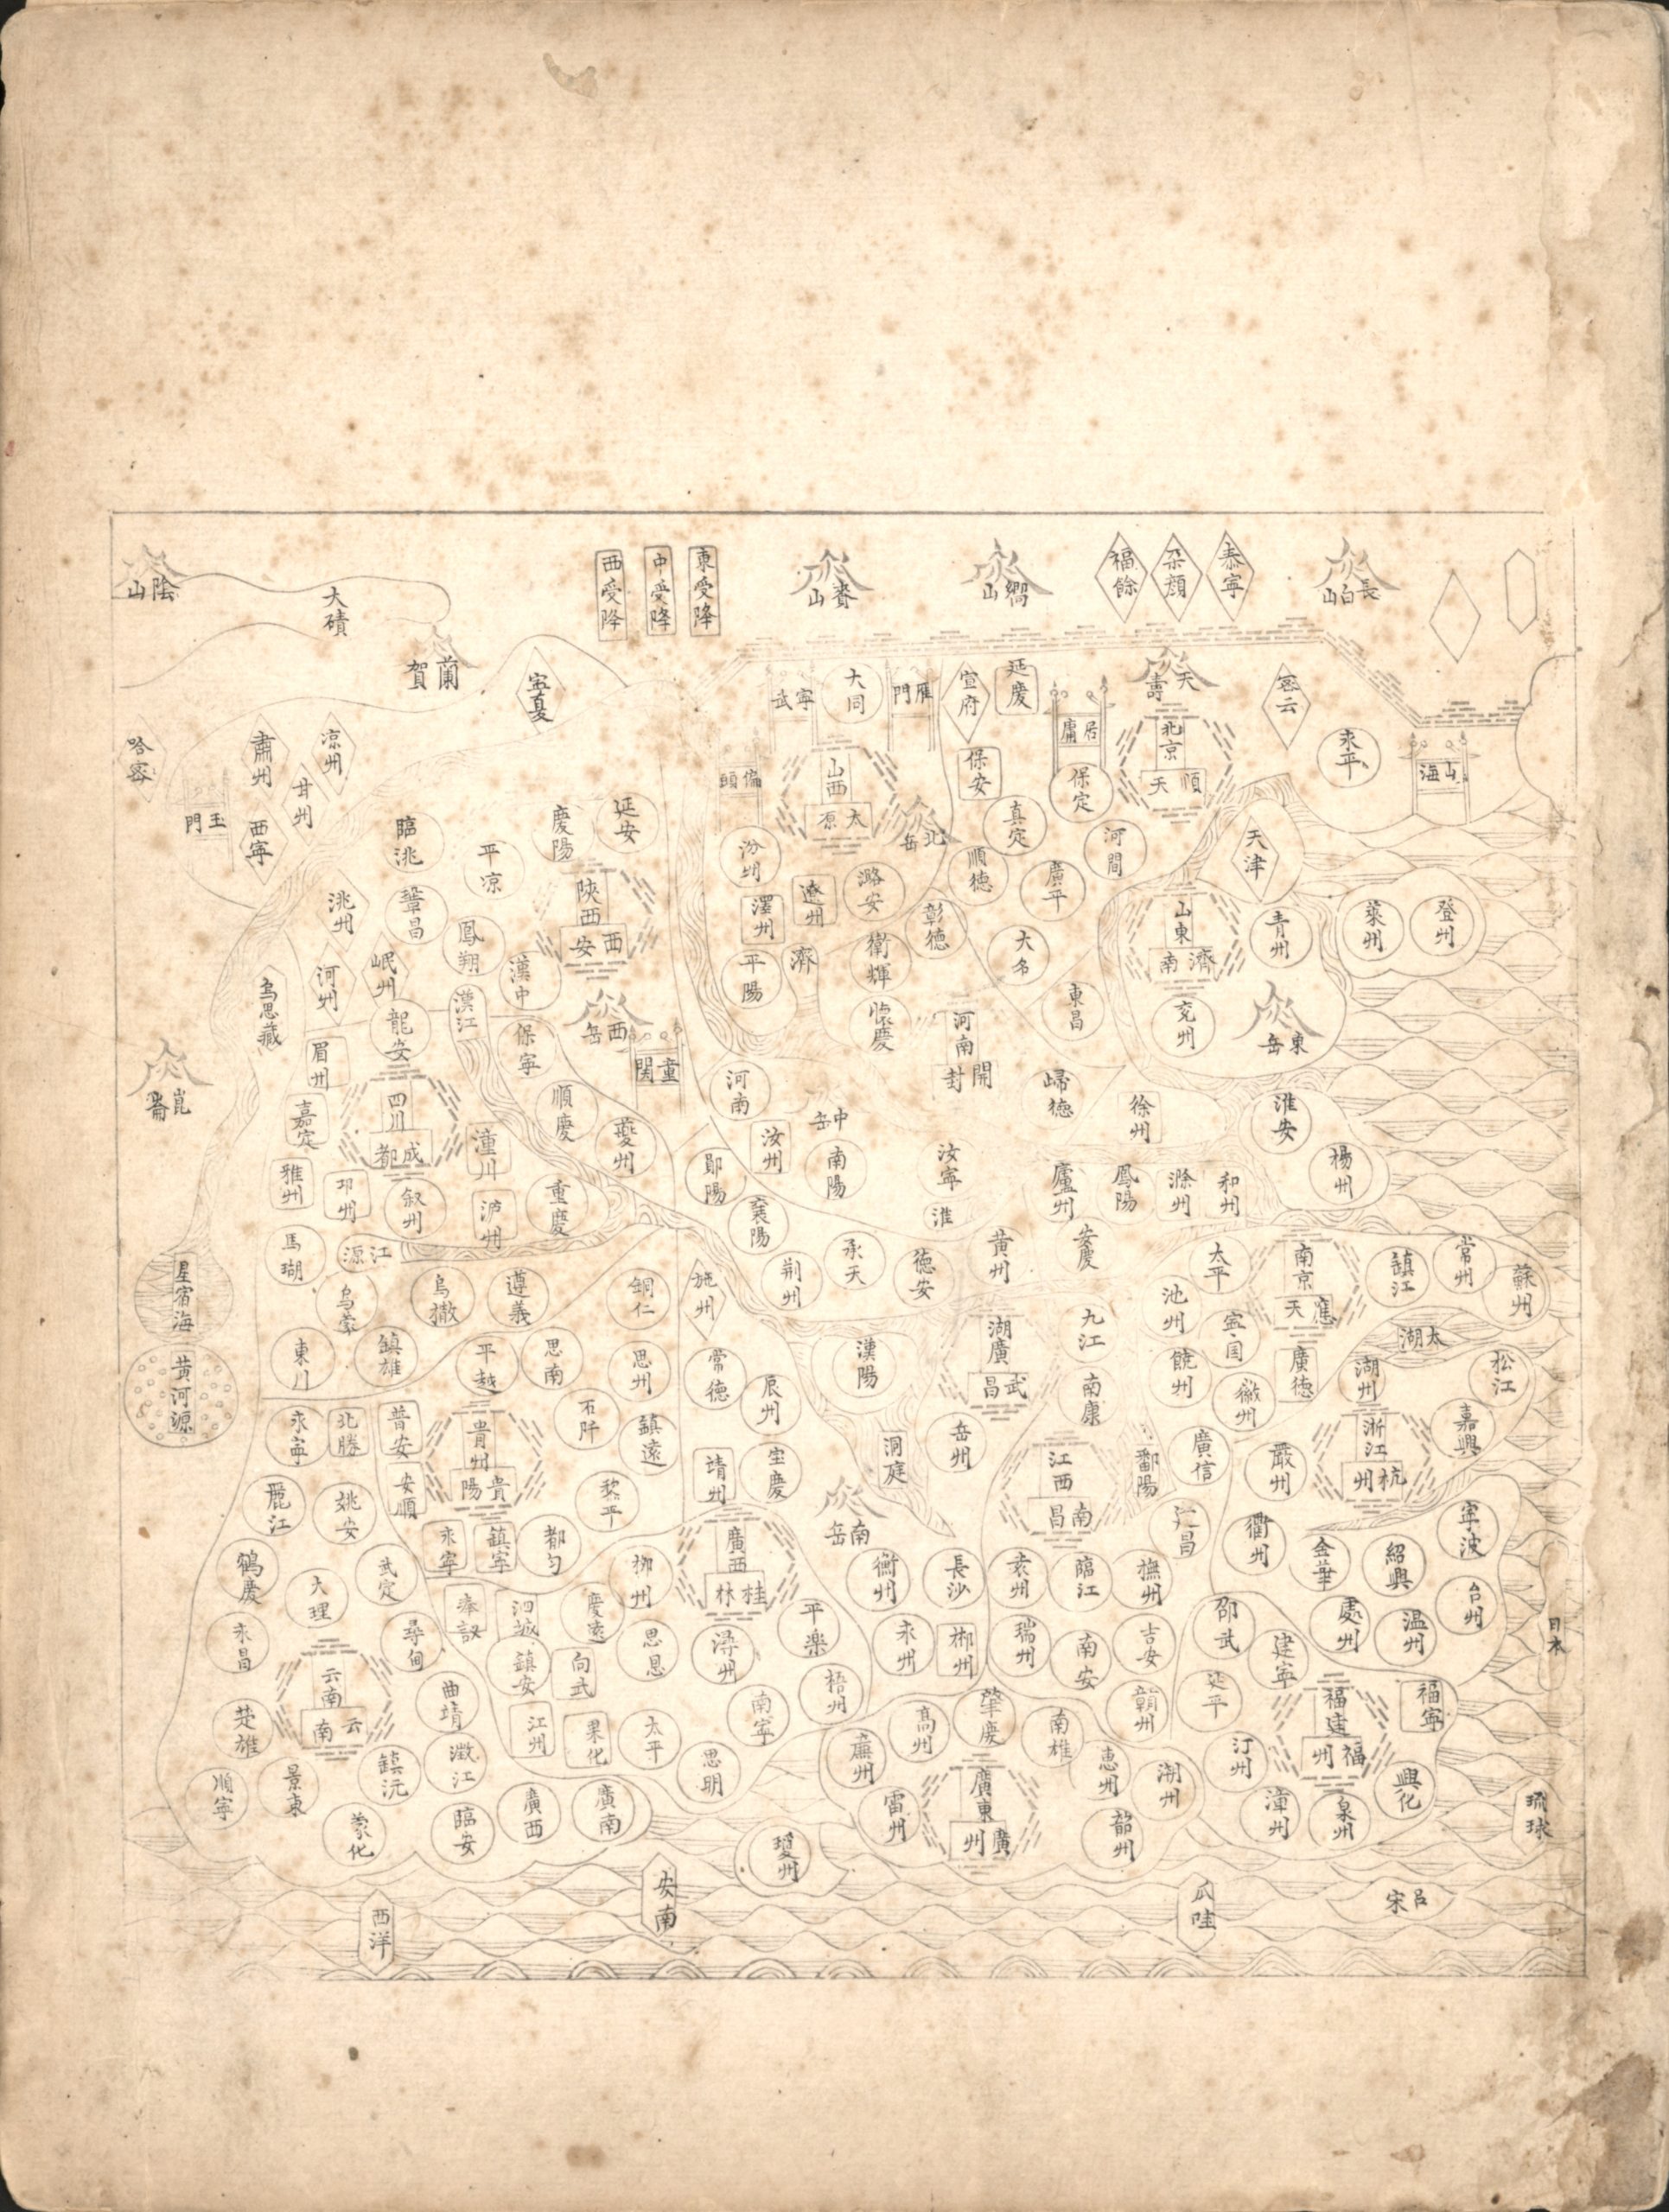 陰山
大磧
賀蘭
西受降
中受降
東受降
長白山
福餘
朵顔
泰寧
天壽
寧武
大同
雁門
宣府
延慶
居庸
北京
順天
密云
永平
山海
偏頭
山西
太原
保安
保定
北岳
真定
河間
天津
哈密
肅州
涼州
甘州
西寧
玉門
臨洮
平凉
慶陽
延安
陝西
西安
汾州
澤州
遼州
潞安
順德
廣平
彰德
大名
山東
濟南
青州
萊州
登州
洮州
鞏昌
鳳翔
漢中
岷州
河州
烏思藏
龍安
漢江
保寧
西岳
潼関
平陽
濟
衛輝
懷慶
河南
開封
東昌
兗州
東岳
崑崙
眉州
嘉定
四川
成都
潼川
順慶
夔州
河南
汝州
中岳
南陽
歸德
徐州
淮安
楊州
雅州
邛州
叙州
泸州
重慶
鄖陽
襄陽
汝寧
淮
廬州
鳳陽
滁州
和州
馬瑚
江源
星宿海
黄河源
烏蒙
烏撒
遵義
銅仁
施州
荊州
承天
德安
黄州
安慶
太平
南京
應天
鎮江
常州
蘇州
池州
九江
湖廣
武昌
漢陽
東川
鎮雄
平越
思南
思州
常德
辰州
南康
饒州
徽州
廣德
湖州
太湖
松江
永寧
北勝
普安
貴州
貴陽
石阡
鎮遠
靖州
宝慶
洞庭
岳州
江西
南昌
鄱陽
廣信
嚴州
浙江
杭州
嘉興
麗江
姚安
安順
永寧
鎮寧
都勻
黎平
廣西
桂林
南岳
衢州
金華
紹興
寧波
鶴慶
大理
武定
柳州
衡州
長沙
袁州
臨江
撫州
台州
永昌
尋甸
泗城
慶遠
思恩
潯州
平楽
永州
郴州
瑞州
南安
吉安
邵武
建寧
處州
温州
日本
云南
云南
鎮安
向武
梧州
楚雄
曲靖
江州
果化
太平
南寧
高州
肇慶
南雄
贛州
延平
福建
福州
福寧
順寧
景東
鎮沅
澂江
思明
廉州
惠州
潮州
汀州
蒙化
臨安
廣西
廣南
瓊州
雷州
廣東
廣州
韶州
漳州
泉州
興化
琉球
西洋
安南
爪哇
呂宋